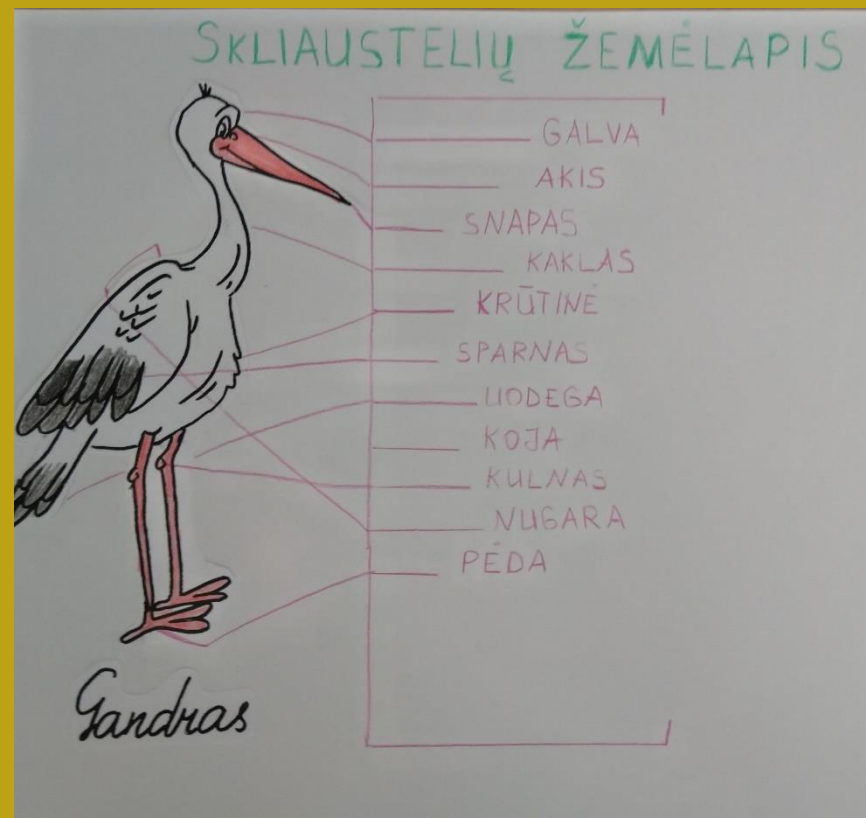 SKLIAUSTELIŲ ŽEMĖLAPIS
GALVA
AKIS
SNAPAS
KAKLAS
KRŪTINĖ
SPARNAS
UODEGA
KOJA
KULNAS
NUGARA
PĖDA
Gandras